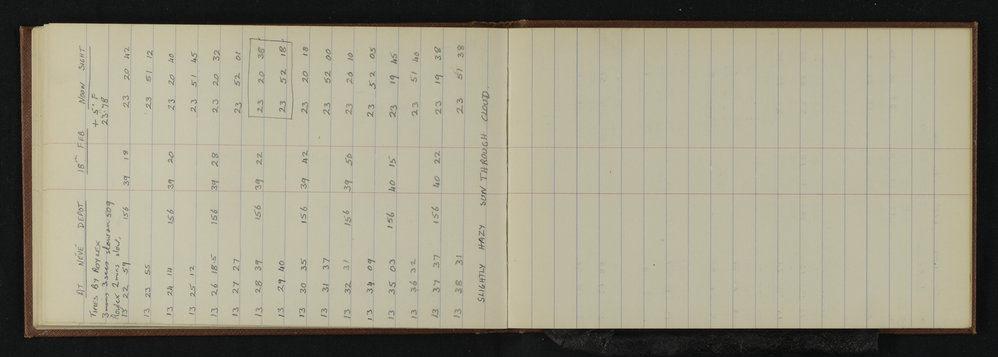 AT NEVÉ DEPOT 18TH FEB NOON SIGHT
TIMES BY ROTREX + 5° F
3 mins 3 secs slow on 509 23.78
Rolex 2 mins slow.
13 22 59 156 39 19 23 20 42
13 23 55 23 51 12
13 24 14 156 39 20 23 20 40
13 25 12 23 51 45
13 26 18.5 156 39 28 23 20 32
13 27 27 23 52 01
13 28 39 156 39 22 23 20 38
13 29 40 23 52 18
13 30 35 156 39 42 23 20 18
13 31 37 23 52 00
13 32 31 156 39 50 23 20 10
13 34 09 23 52 05
13 35 03 156 40 15 23 19 45
13 36 32 23 51 40
13 37 37 156 40 22 23 19 38
13 38 31 23 51 38
SLIGHTLY HAZY SUN THROUGH CLOUD.